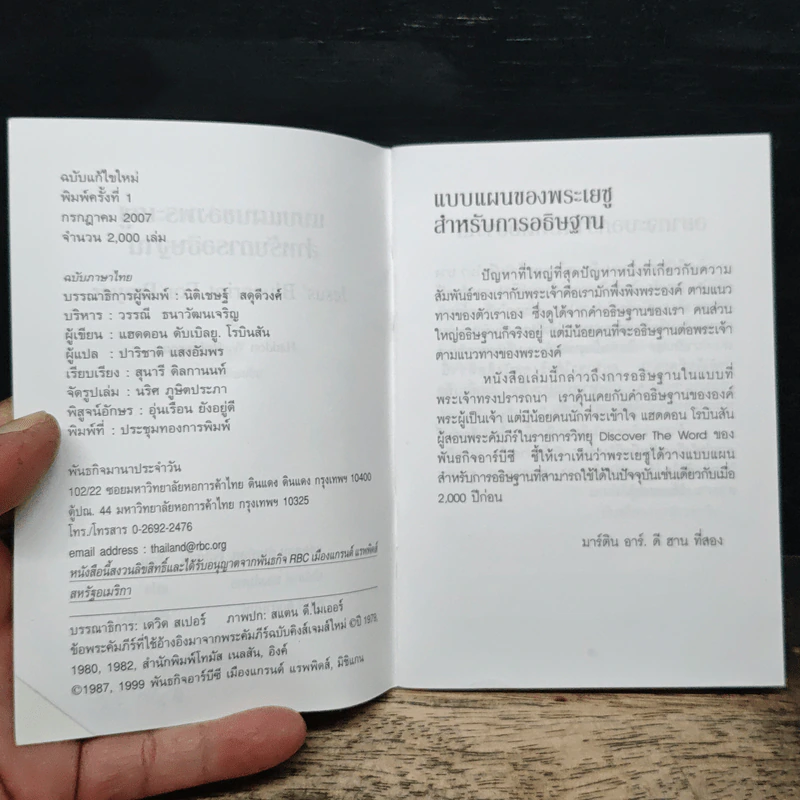 ฉบับแก้ไขใหม่
พิมพ์ครั้งที่ 1
กรกฎาคม 2007
จำนวน 2,000 เล่ม
ฉบับภาษาไทย
บรรณาธิการผู้พิมพ์ : นิติเชษฐ์ สดุดีวงศ์
บริหาร : วรรณี ธนาวัฒนเจริญ
ผู้เขียน : แฮดดอน ดับเบิลยู. โรบินสัน
ผู้แปล : ปาริชาติ แสงอัมพร
เรียบเรียง : สุนารี ดิลกานนท์
จัดรูปเล่ม : นริศ ภูษิตประภา
พิสูจน์อักษร : อุ่นเรือน ยังอยู่ดี
พิมพ์ที่ : ประชุมทองการพิมพ์
พันธกิจมานาประจำวัน
102/22 ซอยมหาวิทยาลัยหอการค้าไทย ดินแดง ดินแดง กรุงเทพฯ 10400
ตู้ปณ. 44 มหาวิทยาลัยหอการค้าไทย กรุงเทพฯ 10325
โทร./โทรสาร 0-2692-2476
email address : thailand@rbc.org
หนังสือนี้สงวนลิขสิทธิ์และได้รับอนุญาตจากพันธกิจ RBC เมืองแกรนด์ แรพพิดส์
สหรัฐอเมริกา
บรรณาธิการ: เดวิด สเปอร์ ภาพปก: สแตน ดี.ไมเออร์
ข้อพระคัมภีร์ที่ใช้อ้างอิงมาจากพระคัมภีร์ฉบับคิงส์เจมส์ใหม่ ©ปี 1979,
1980, 1982, สำนักพิมพ์โทมัส เนลสัน, อิงค์
©1987, 1999 พันธกิจอาร์บีซี เมืองแกรนด์ แรพพิดส์, มิชิแกน
แบบแผนของพระเยซู
สำหรับการอธิษฐาน
ปัญหาที่ใหญ่ที่สุดปัญหาหนึ่งที่เกี่ยวกับความ
สัมพันธ์ของเรากับพระเจ้าคือเรามักพึ่งพิงพระองค์ ตามแนว
ทางของตัวเราเอง ซึ่งดูได้จากคำอธิษฐานของเรา คนส่วน
ใหญ่อธิษฐานก็จริงอยู่ แต่มีน้อยคนที่จะอธิษฐานต่อพระเจ้า
ตามแนวทางของพระองค์
หนังสือเล่มนี้กล่าวถึงการอธิษฐานในแบบที่
พระเจ้าทรงปรารถนา เราคุ้นเคยกับคำอธิษฐานขององค์
พระผู้เป็นเจ้า แต่มีน้อยคนนักที่จะเข้าใจ แฮดดอน โรบินสัน
ผู้สอนพระคัมภีร์ในรายการวิทยุ Discover The Word ของ
พันธกิจอาร์บีซี ชี้ให้เราเห็นว่าพระเยซูได้วางแบบแผน
สำหรับการอธิษฐานที่สามารถใช้ได้ในปัจจุบันเช่นเดียวกับเมื่อ
2,000 ปีก่อน
มาร์ติน อาร์. ดี ฮาน ที่สอง